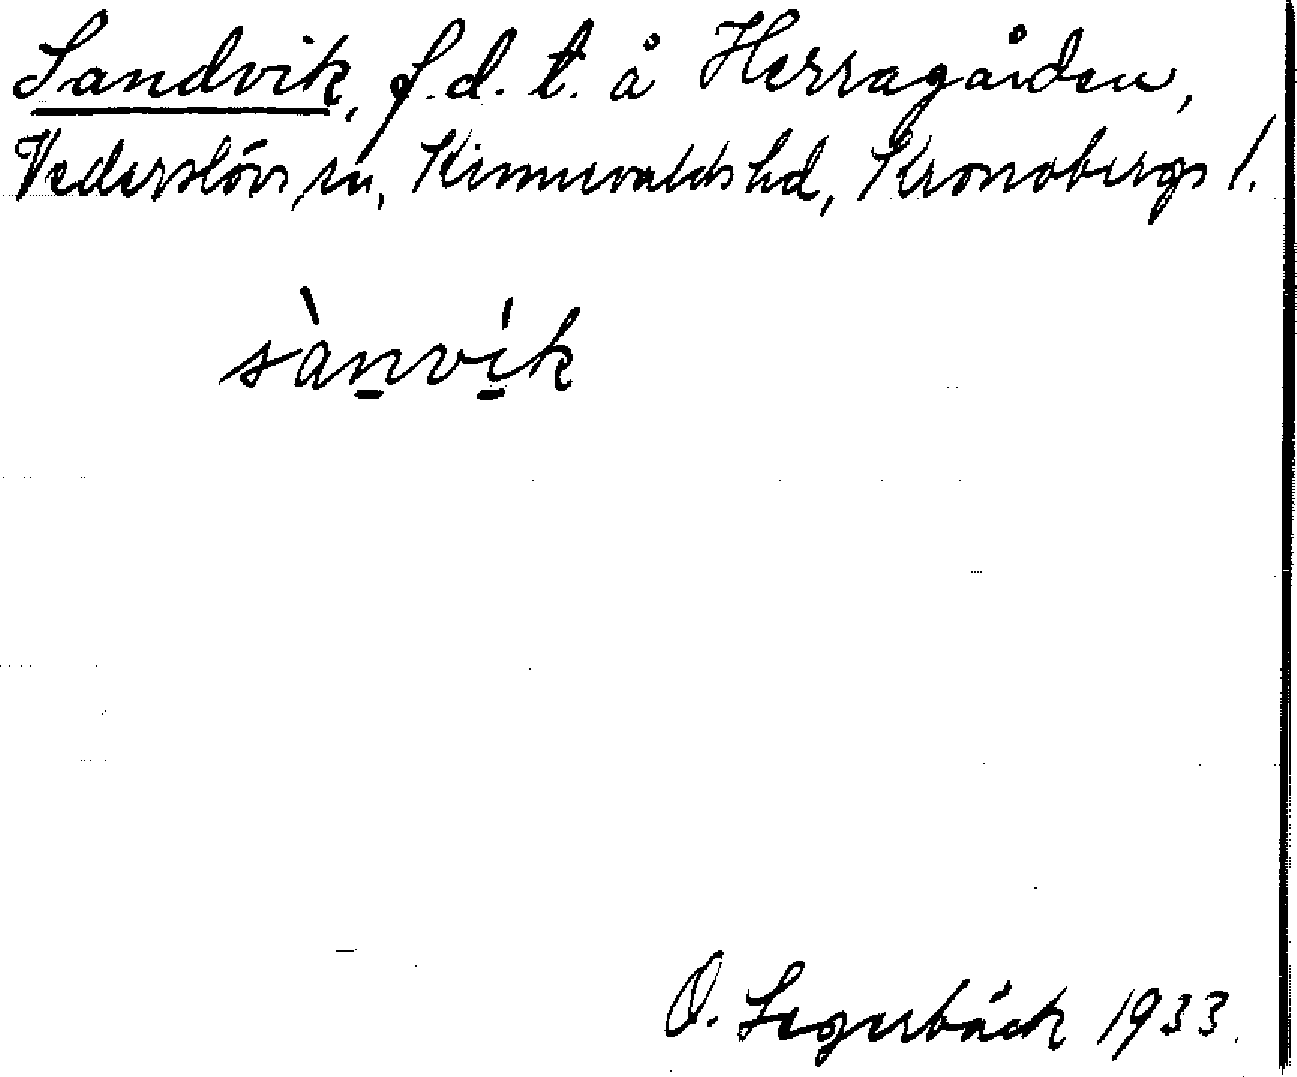 Sandvik, f.d. t. å Herragården,
Vederslövs sn, Kinnevalds hd, Kronobergs l.
sànvík
O. Segerbäck 1933.